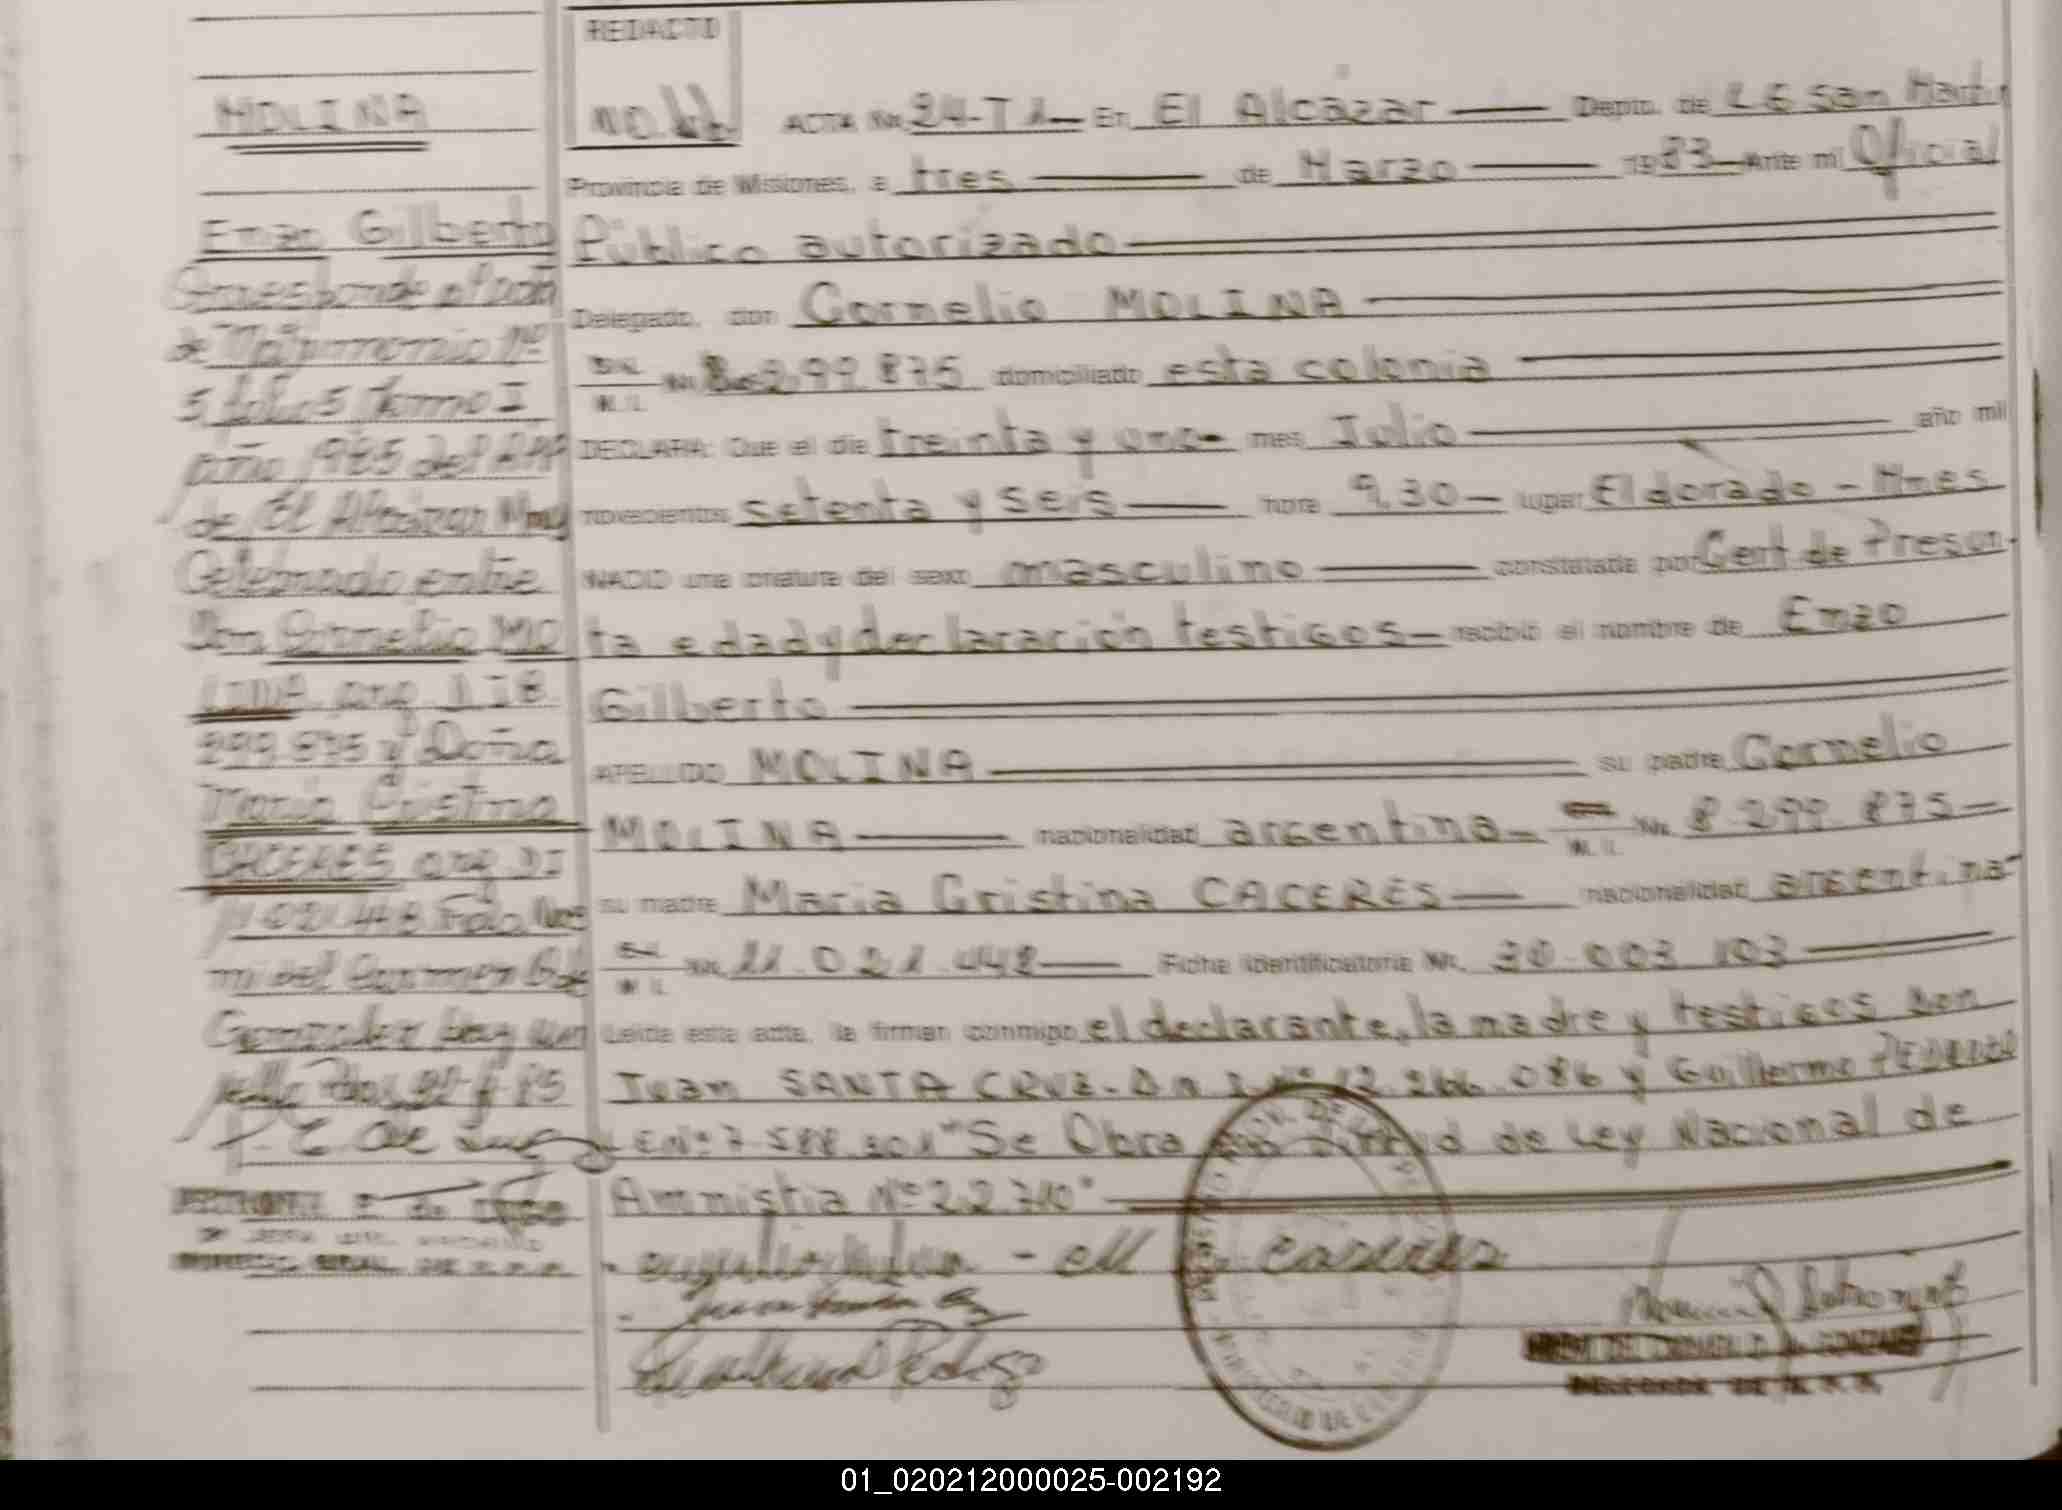 REDACTO
MOLINA
ACTA No. 24-T1- En El Alcázar Depto. de L G San Martin
Provincia de Misiones, a tres de Marzo 1983- Ante mi Oficial
Público autorizado
Delegado, don Cornelio MOLINA
M. I. No. 8.299.875 domiciliado esta colonia
DECLARA: Que el día treinta y uno- mes Julio año mil
novecientos setenta y seis hora 9.30 lugar Eldorado - Mnes
NACIO una criatura del sexo masculino constatada por Cert de Presun
ta edad y declaración testigos- recibió el nombre de Enzo
Gilberto
APELLIDO MOLINA su padre Cornelio
MOLINA nacionalidad argentina- M. I. No. 8.299.875-
su madre Maria Cristina CACERES nacionalidad argentina-
M. I. No. 11.021.448 Ficha Identificatoria No. 30.003.103
Leída esta acta, la firman conmigo el declarante, la madre y testigos don
Juan SANTA CRUZ- D.N.I. Nº 12.266.086 y Guillermo
LE Nº 7.588.801 "Se Obra en virtud de Ley Nacional de
Amnistia Nº 22.710"
M caceres
Enzo Gilberto
Corresponde al acta
de Matrimonio Nº
5 folio 5 tomo I
año 1985 del RPP
de El Alcázar Mnes
Celebrado entre
Don Cornelio MO
LINA arg D I 8.
299.875 y Doña
Maria Cristina
CACERES arg DI
11.021.448 Fdo Noe
mi del Carmen B de
Gonzalez Hay un
sello Pdas
P. E. de Lugo
DELEGADA DE R. P. P.
01_020212000025-002192